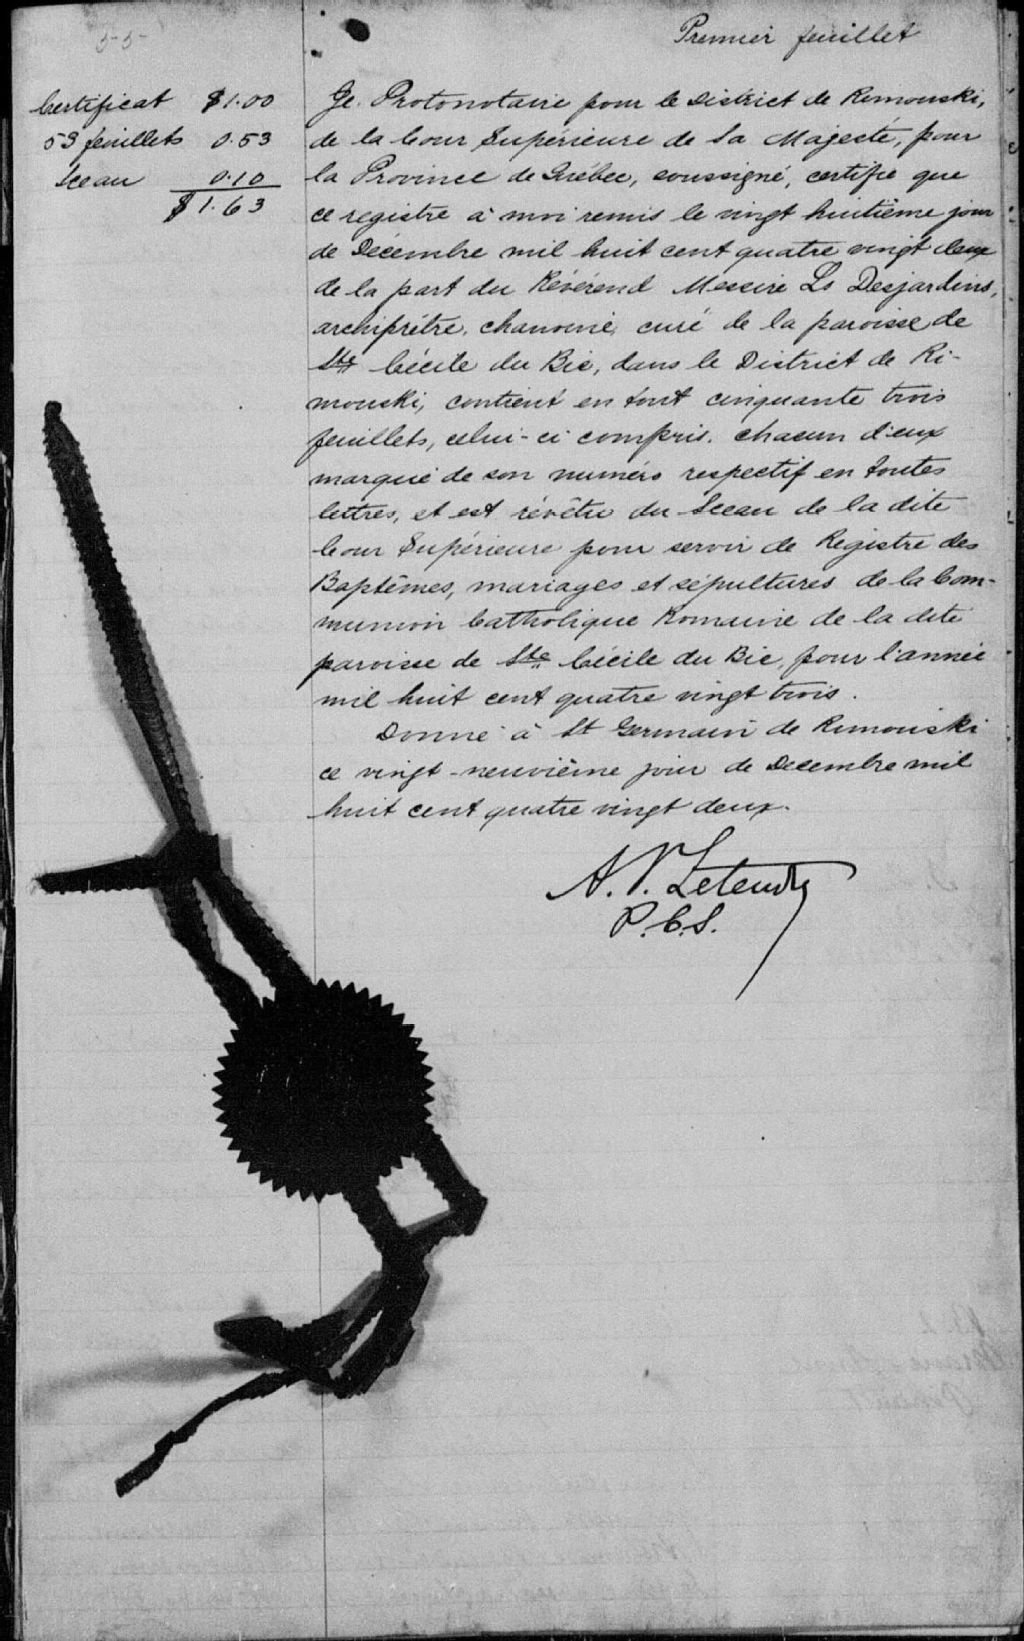 55
Premier feuillet
Certificat $1.00
53 feuillets 0.53
Sceau 0.10
$1.63
Je. Protonotaire pour le District de Rimouski,
de la Cour Supérieure de Sa Majesté, pour
la Province de Québec, soussigné, certifie que
ce registre à moi remis le vingt huitième jour
de Décembre mil huit cent quatre vingt deux
de la part du Révérend Messire Ls Desjardins,
archiprêtre, chanoine, curé de la paroisse de
Ste Cécile du Bic, dans le District de Ri-
mouski, contient en tout cinquante trois
feuillets, celui-ci compris. chacun d'eux
marqué de son numéro respectif en toutes
lettres, et est révêtu du Sceau de la dite
Cour Supérieure pour servir de Registre des
Baptêmes, mariages et sépultures de la Com-
munion Catholique Romaine de la dite
paroisse de Ste Cécile du Bic, pour l'année
mil huit cent quatre vingt trois.
Donné à St Germain de Rimouski
ce vingt-neuvième jour de Decembre mil
huit cent quatre vingt deux.
A. P. Letendre
P.C.S.